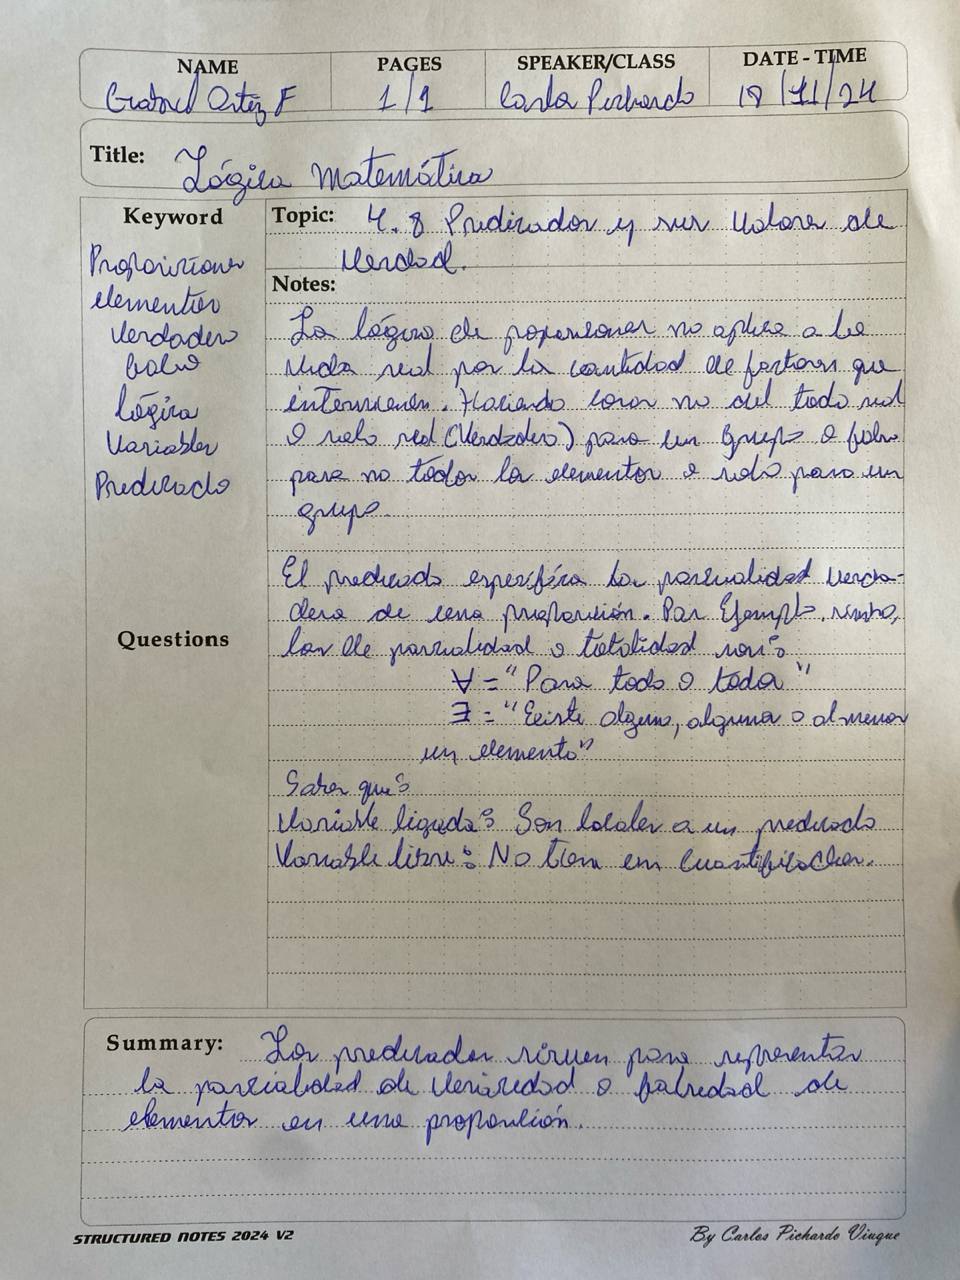 NAME PAGES SPEAKER/CLASS DATE - TIME
Ortiz F 1/1 Carlos Pichardo 19/11/24
Title: Lógica Matemática
Keyword
Proposiciones
elementos
Verdadero
falso
lógica
Variables
Predicado
Questions
Topic: 4.8 Predicados y sus Valores de
Verdad.
Notes:
La lógica de proposiciones no aplica a la
vida real por la cantidad de factores que
intervienen. Haciendo cosas no del todo real
o solo real (Verdadero) para un Grupo o falso
para no todos los elementos o solo para un
grupo.
El predicado especifica la parcialidad Verda-
dera de una proposición. Por Ejemplo,
los de parcialidad o totalidad son:
∀ = "Para todo o toda"
∃ = "Existe alguno, alguna o al menos
un elemento"
Saber que:
Variable ligada: Son locales a un predicado
Variable libre: No tiene cuantificador.
Summary: Los predicados sirven para representar
la parcialidad de Veracidad o falsedad de
elementos en una proposición.
STRUCTURED NOTES 2024 V2
By Carlos Pichardo Viuque